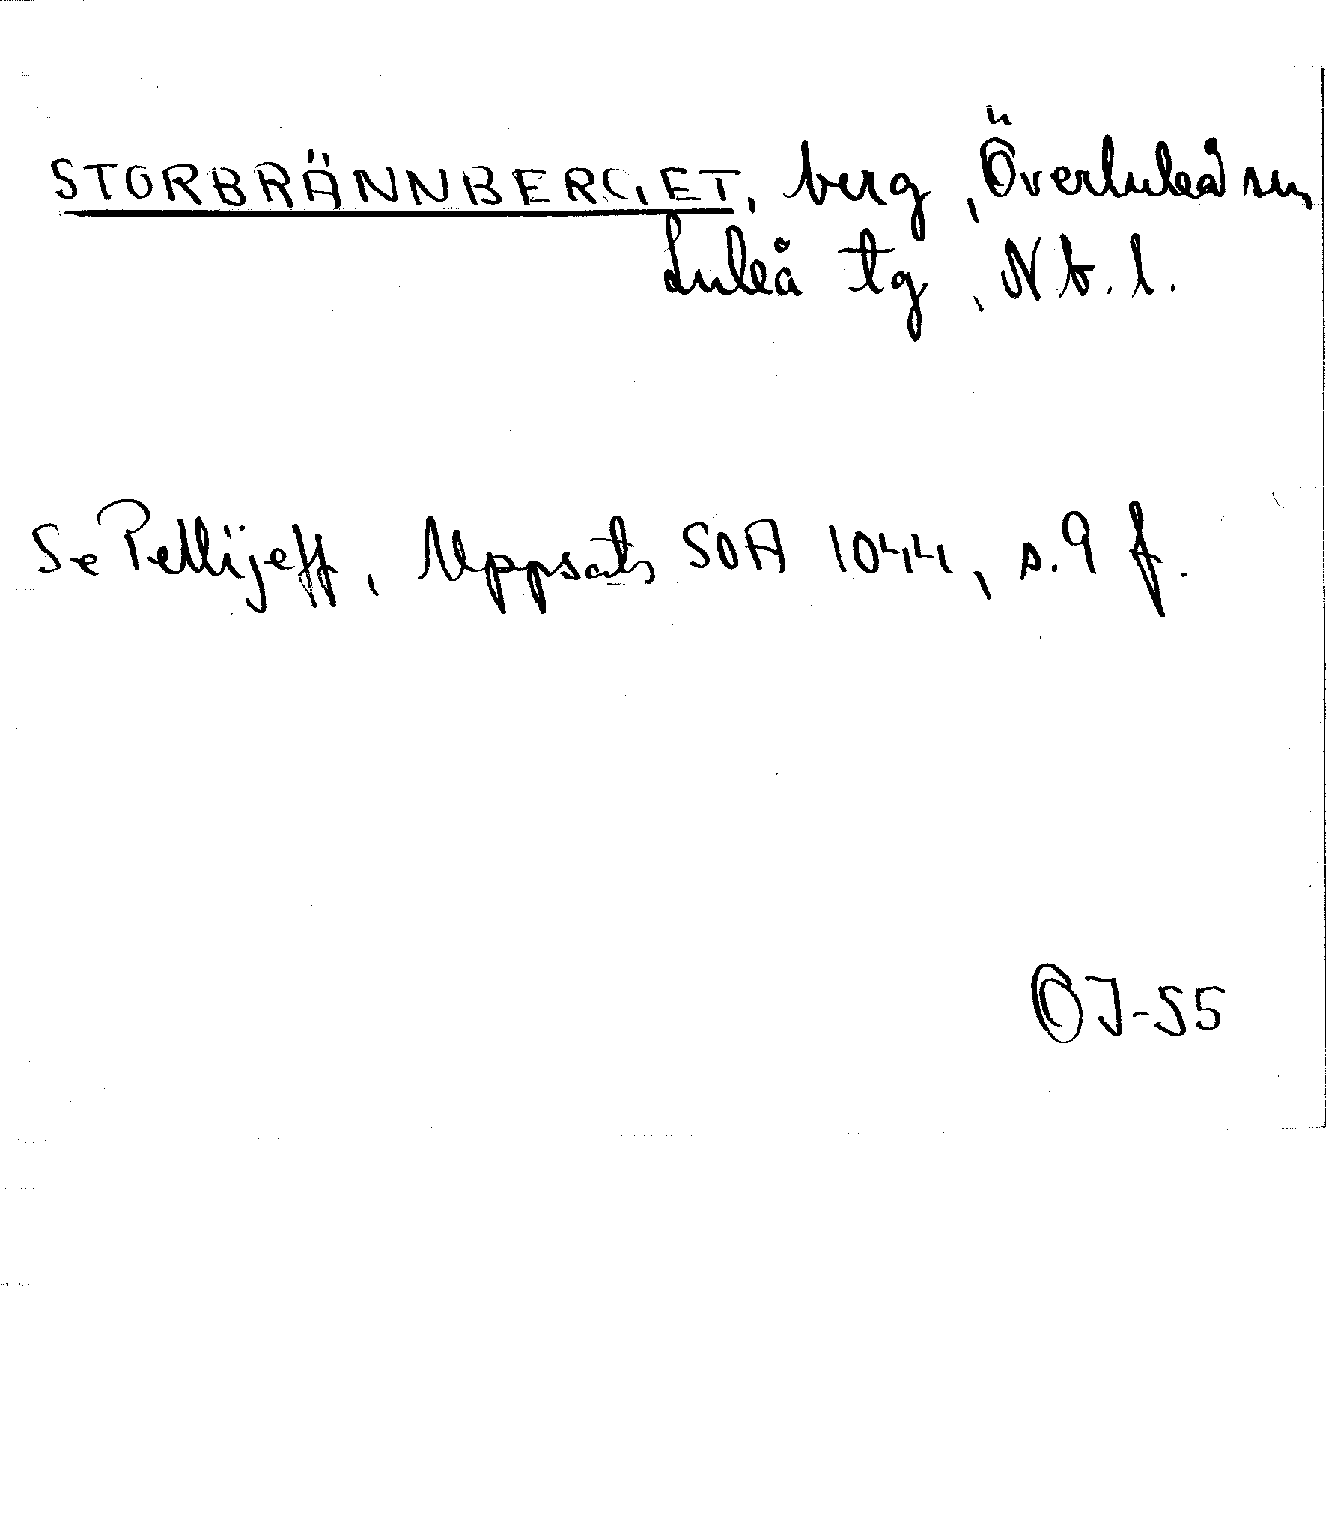 STORBRÄNNBERGET, berg, Överluleå sn,
Luleå tg, Nb. l.
Se Pellijeff, Uppsats SOA 1044, s. 9 f.
OJ-55